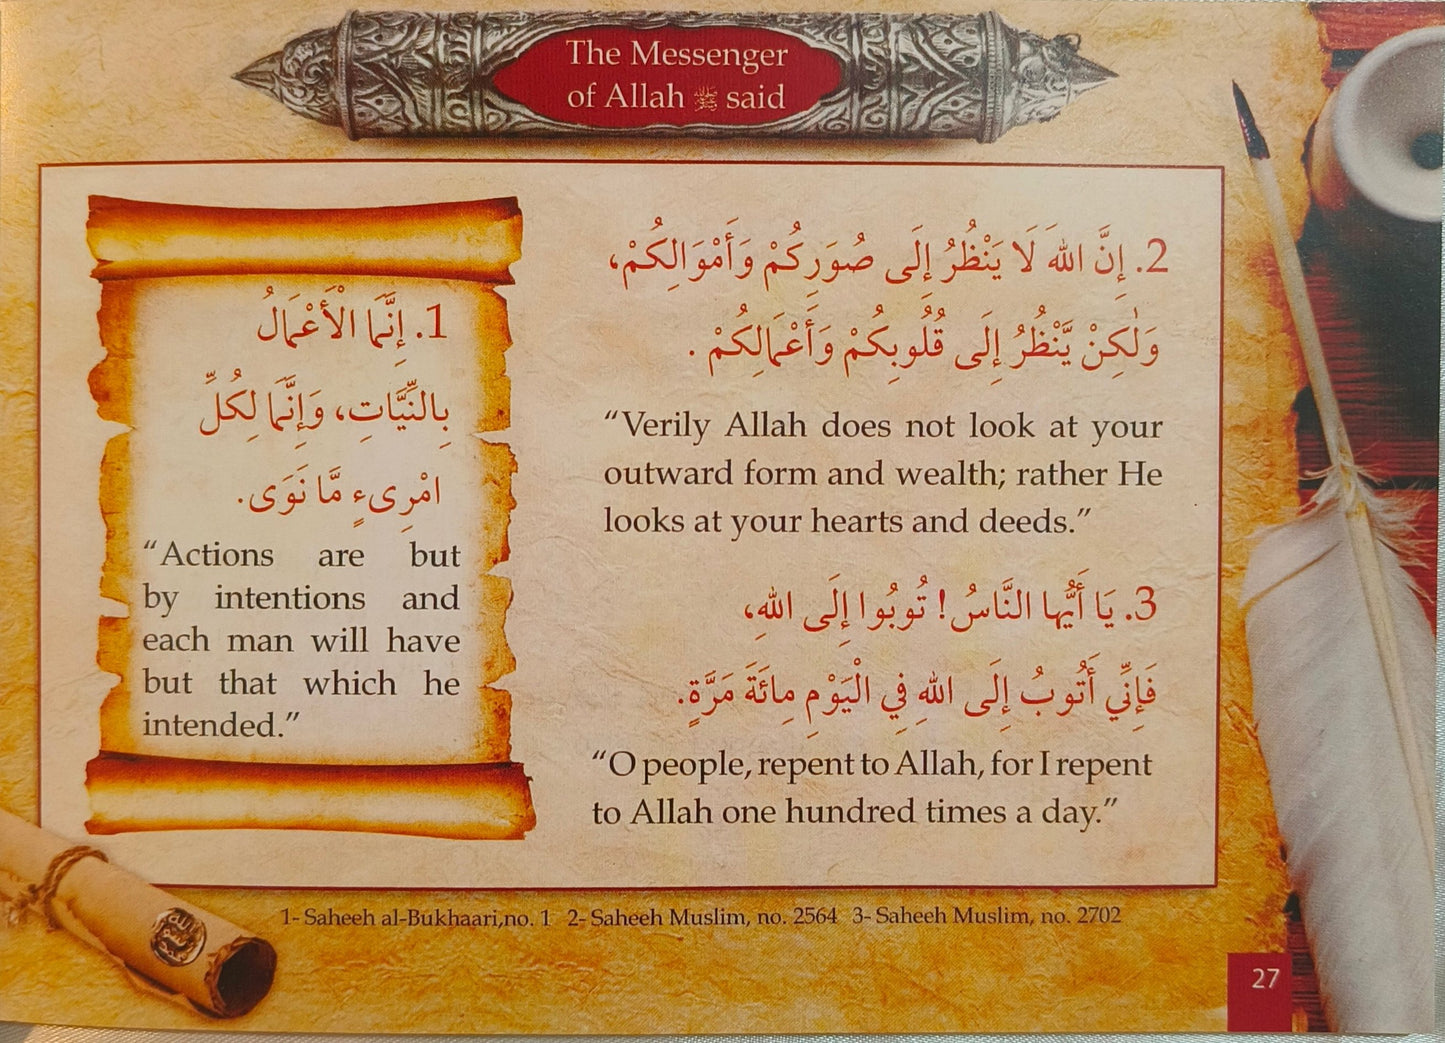 The Messenger
of Allah ﷺ said
1. إِنَّمَا الْأَعْمَالُ
بِالنِّيَّاتِ، وَإِنَّمَا لِكُلِّ
امْرِىءٍ مَّا نَوَى.
“Actions are but
by intentions and
each man will have
but that which he
intended.”
2. إِنَّ اللهَ لَا يَنْظُرُ إِلَى صُوَرِكُمْ وَأَمْوَالِكُمْ،
وَلٰكِنْ يَّنْظُرُ إِلَى قُلُوبِكُمْ وَأَعْمَالِكُمْ .
“Verily Allah does not look at your
outward form and wealth; rather He
looks at your hearts and deeds.”
3. يَا أَيُّها النَّاسُ! تُوبُوا إِلَى اللهِ،
فَإِنِّي أَتُوبُ إِلَى اللهِ فِي الْيَوْمِ مِائَةَ مَرَّةٍ.
“O people, repent to Allah, for I repent
to Allah one hundred times a day.”
1- Saheeh al-Bukhaari,no. 1 2- Saheeh Muslim, no. 2564 3- Saheeh Muslim, no. 2702
27